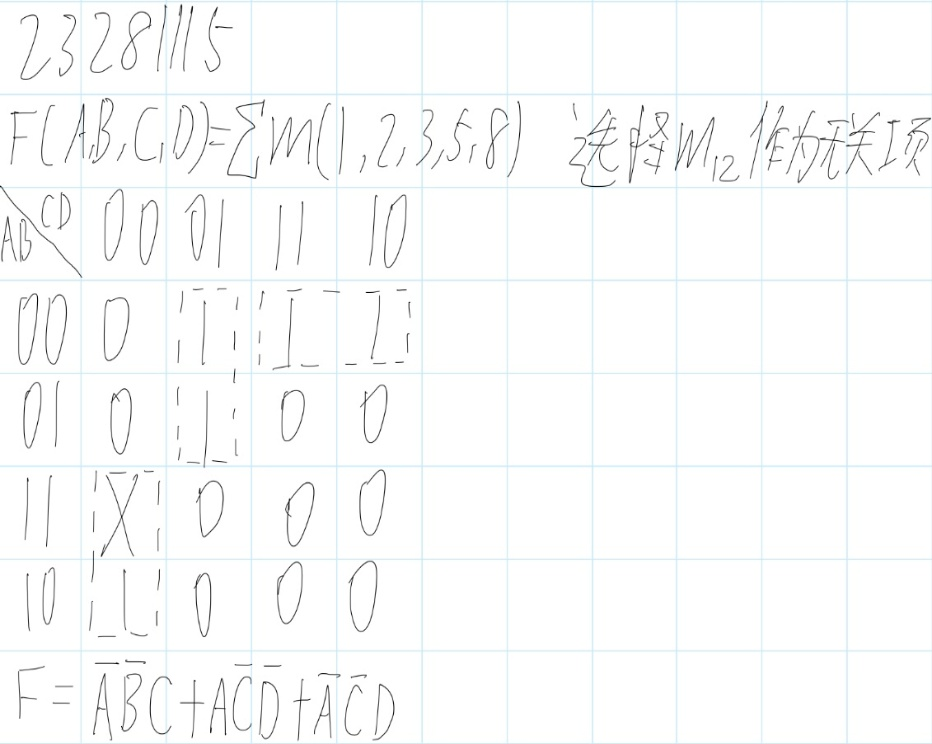 23281115
F(A,B,C,D)=∑m(1,2,3,5,8) 选择m₁₂作为无关项
AB\CD 00 01 11 10
00 0 1 1 1
01 0 1 0 0
11 X 0 0 0
10 1 0 0 0
F = A̅B̅C+AC̅D̅+A̅C̅D